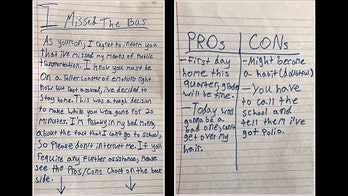 I Missed The Bus
As you see, I regret to inform you
that I've missed my means of public
transportation. I know you must be
on a roller coaster of emotions right
now but rest assured, I've decided to
stay home. This was a tough decision
to make while you were gone for 20
minutes. I'm Probably in my bed mourning
about the fact that I can't go to school,
so Please don't interrupt me. If you
require any further assistance, Please
see the Pros/Cons Chart on the back
side.
PROs
- First day
home this
quarter, grades
will be fine.
- Today was
gonna be a
bad one, can't
get over my
hair.
CONs
- Might become
a habit (doubtful)
- You have
to call the
school and
tell them I've
got Polio.